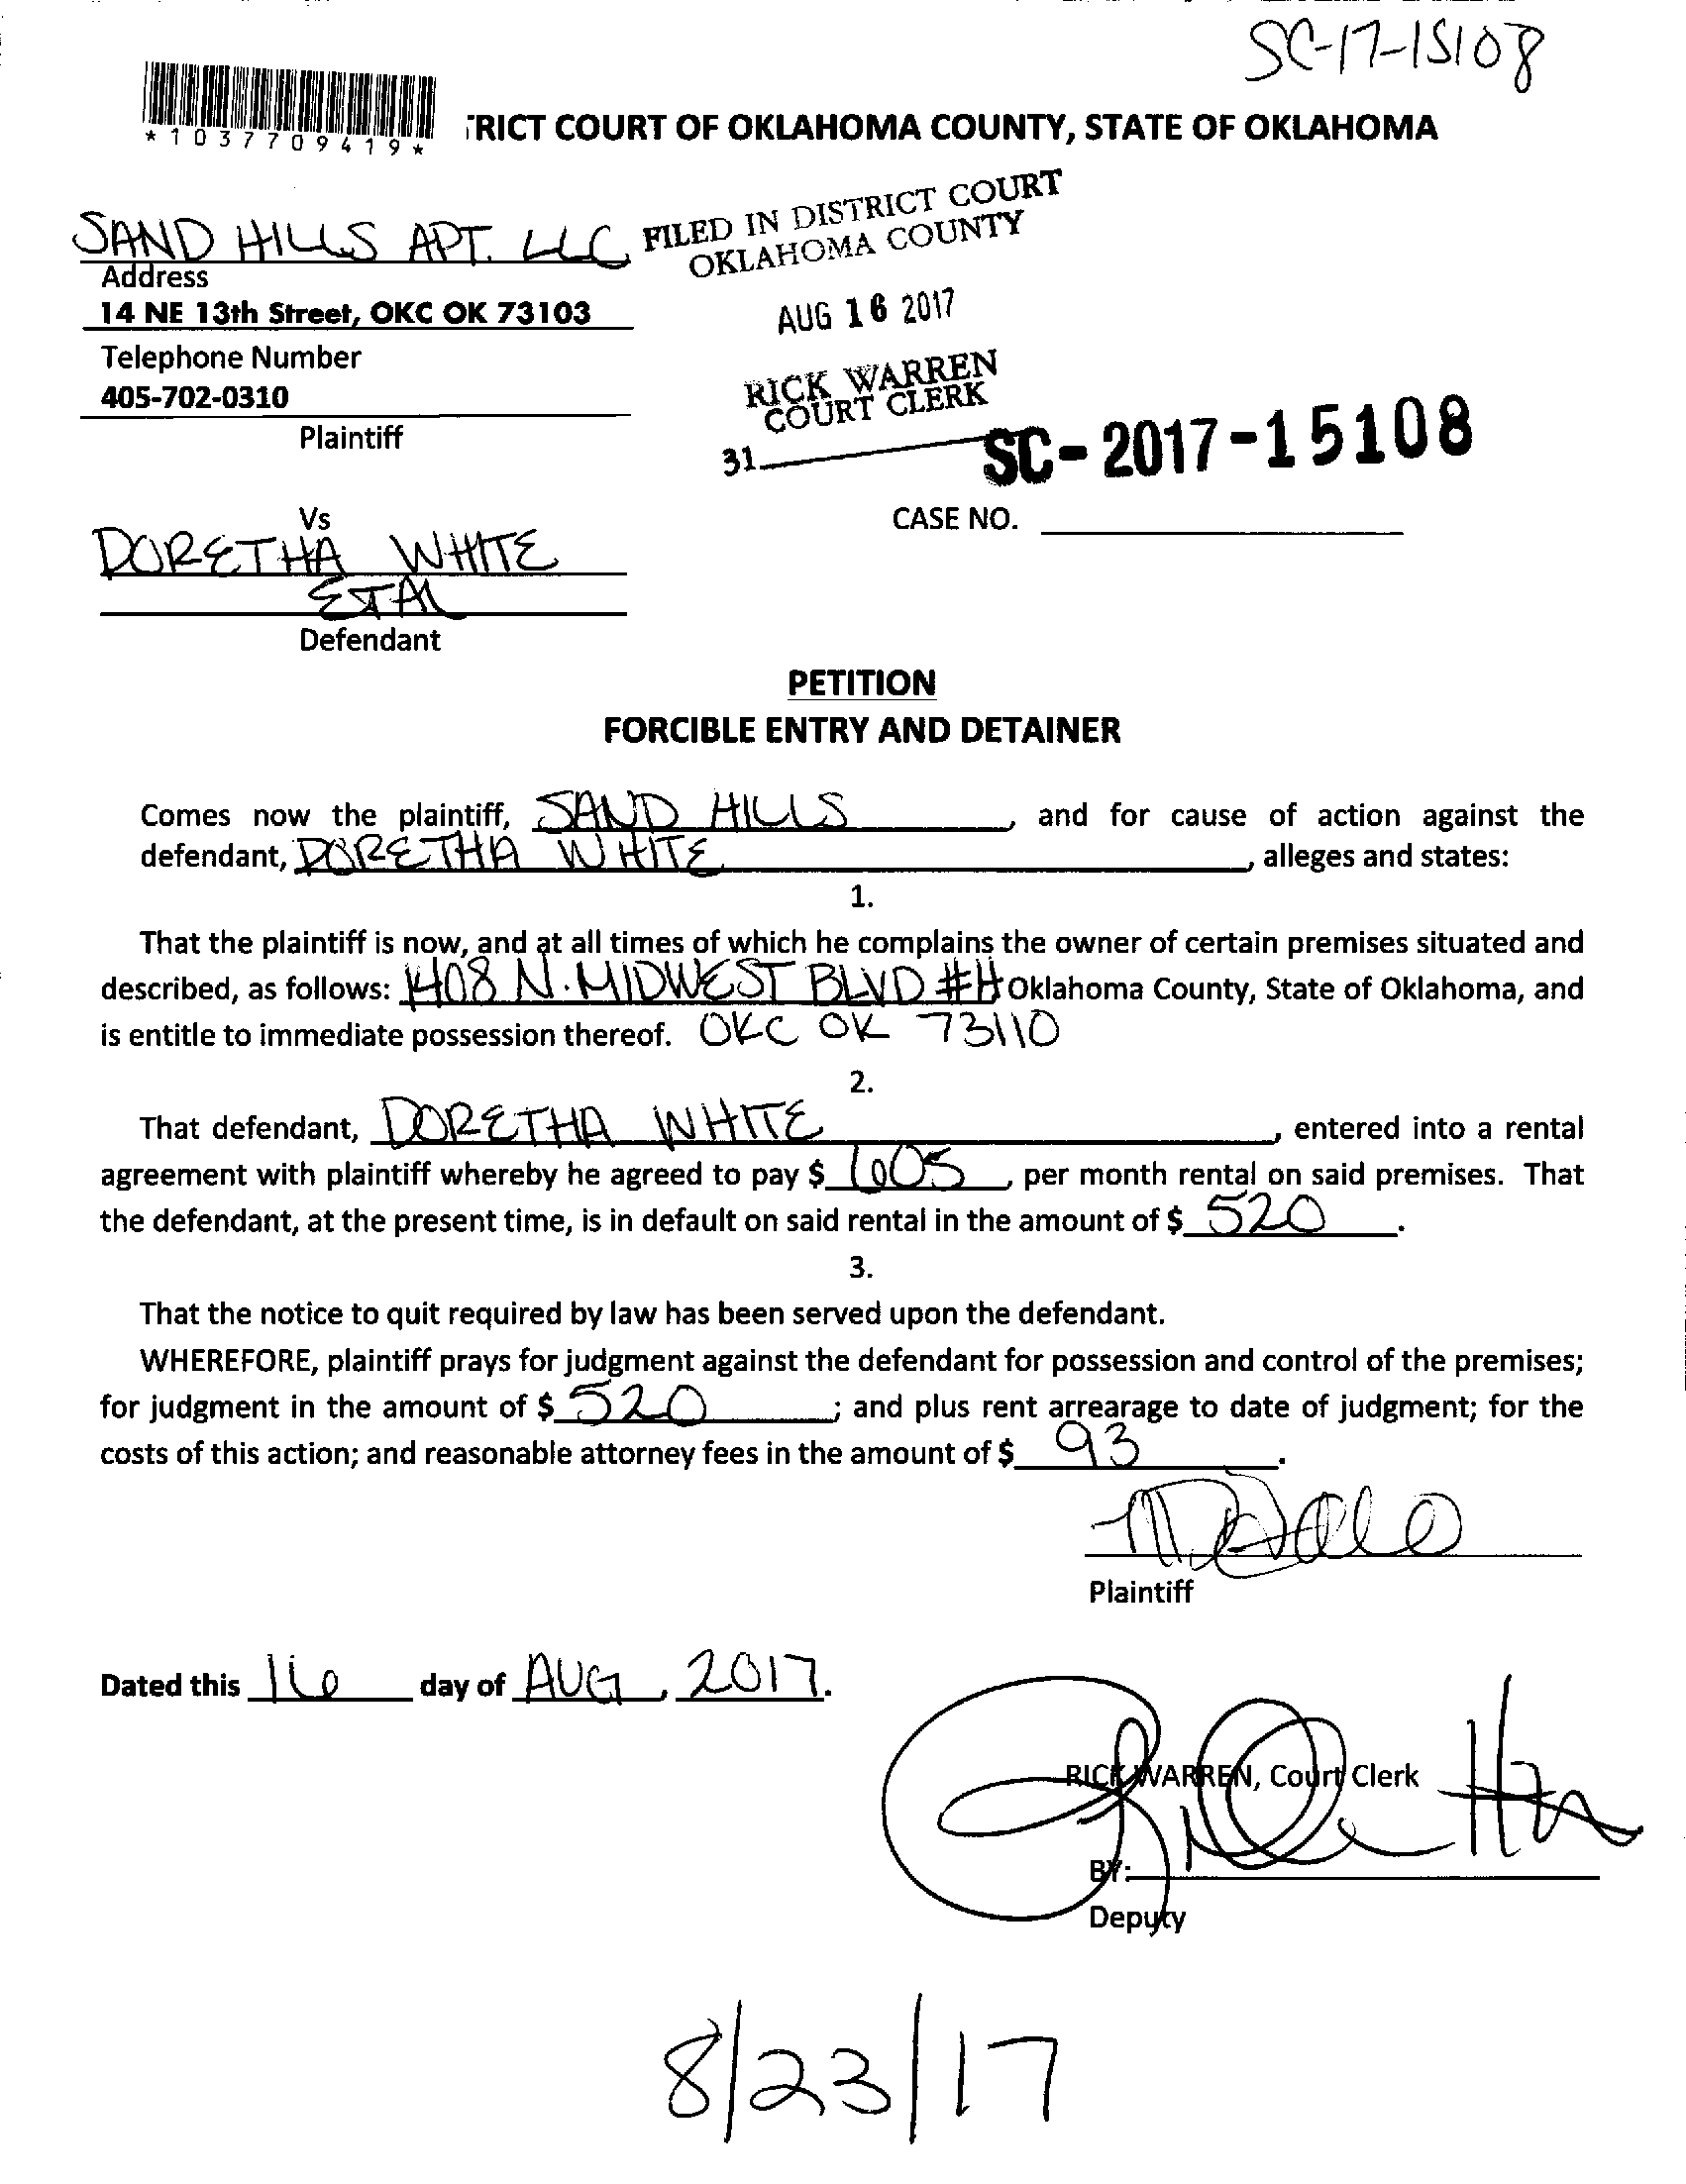 SC-17-15108
*1037709419*
TRICT COURT OF OKLAHOMA COUNTY, STATE OF OKLAHOMA
SAND HILLS APT. LLC
FILED IN DISTRICT COURT
OKLAHOMA COUNTY
Address
14 NE 13th Street, OKC OK 73103
AUG 16 2017
Telephone Number
405-702-0310
RICK WARREN
COURT CLERK
Plaintiff
31
SC-2017-15108
Vs
CASE NO.
DORETHA WHITE
ETAL
Defendant
PETITION
FORCIBLE ENTRY AND DETAINER
Comes now the plaintiff, SAND HILLS, and for cause of action against the
defendant, DORETHA WHITE, alleges and states:
1.
That the plaintiff is now, and at all times of which he complains the owner of certain premises situated and
described, as follows: 1408 N. MIDWEST BLVD #H Oklahoma County, State of Oklahoma, and
is entitle to immediate possession thereof. OKC OK 73110
2.
That defendant, DORETHA WHITE, entered into a rental
agreement with plaintiff whereby he agreed to pay $ 605, per month rental on said premises. That
the defendant, at the present time, is in default on said rental in the amount of $ 520.
3.
That the notice to quit required by law has been served upon the defendant.
WHEREFORE, plaintiff prays for judgment against the defendant for possession and control of the premises;
for judgment in the amount of $ 520; and plus rent arrearage to date of judgment; for the
costs of this action; and reasonable attorney fees in the amount of $ 93.
Plaintiff
Dated this 16 day of AUG, 2017.
RICK WARREN, Court Clerk
BY:
Deputy
8/23/17